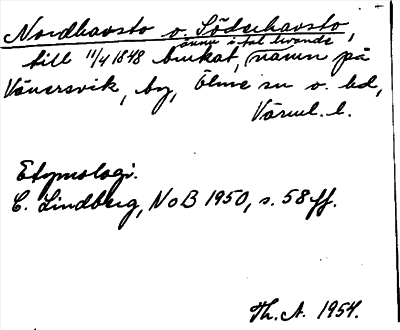 Nordhavsto o. Söderhavsto,
ännu i tal levande
till 11/4 1848 brukat, namn på
Vänersvik, by, Ölme sn o. hd,
Värml. l.
Etymologi.
C. Lindberg, NoB 1950, s. 58 ff.
Th. A. 1954.